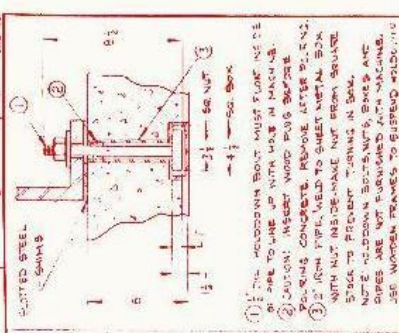 SLOTTED STEEL
SHIMS
①
②
③
8½
6
1½
3½ SQ. NUT
4½ SQ. BOX
① HOLDDOWN BOLT MUST FLOAT INSIDE
OF PIPE TO LINE UP WITH HOLE IN MACHINE.
② CAUTION: INSERT WOOD PLUG BEFORE
POURING CONCRETE, REMOVE AFTER POURING.
③ PIPE, WELD TO SHEET METAL BOX
WITH NUT INSIDE. MAKE NUT FROM SQUARE
STOCK TO PREVENT TURNING IN BOX.
NOTE HOLDDOWN BOLTS, NUTS, BOXES AND
PIPES ARE NOT FURNISHED WITH MACHINE.
USE WOODEN FRAMES TO SUSPEND HOLDDOWN